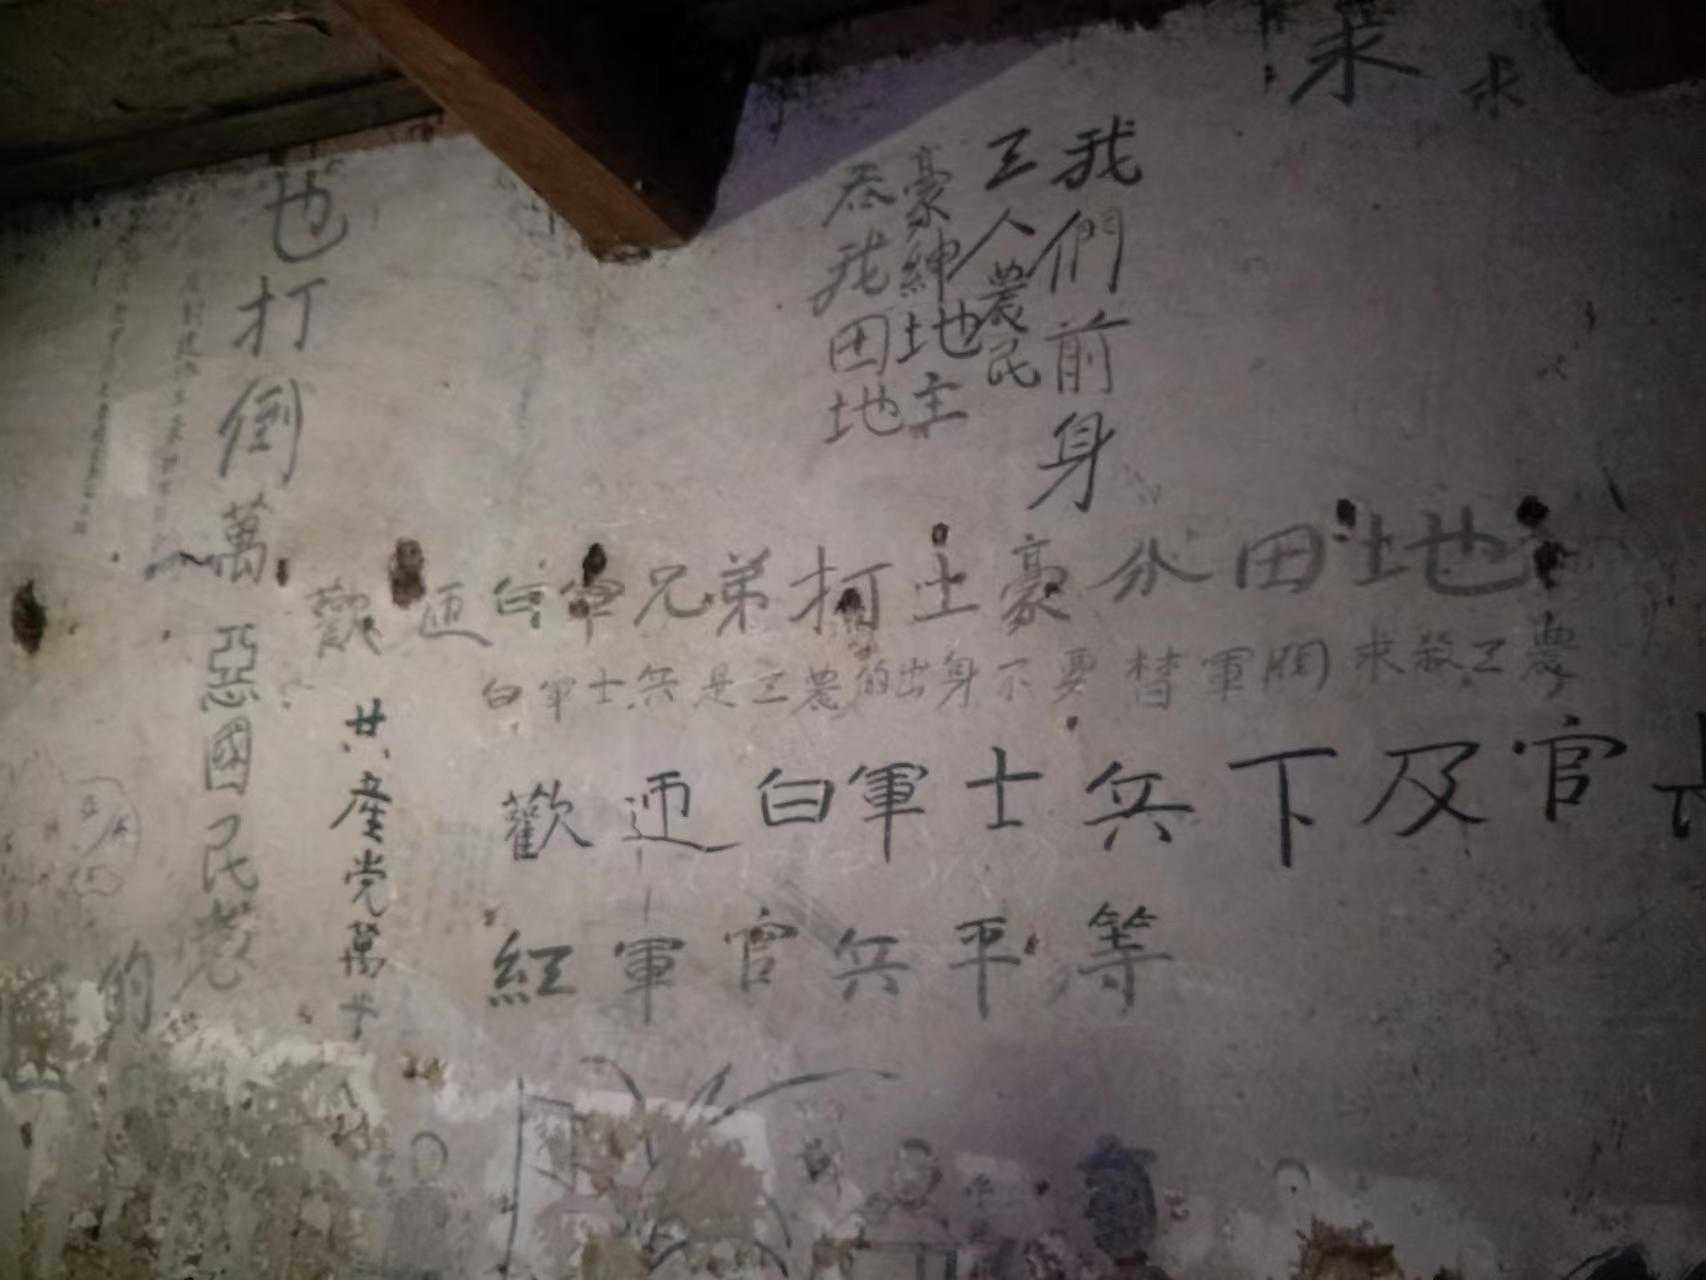 我們前身
工人農民
豪紳地主
吞我田地
歡迊白軍兄弟打土豪分田地
白軍士兵是工農的出身不要替軍閥來殺工農
歡迊白軍士兵下及官長
紅軍官兵平等
共產党萬
也打倒萬惡國民党
的